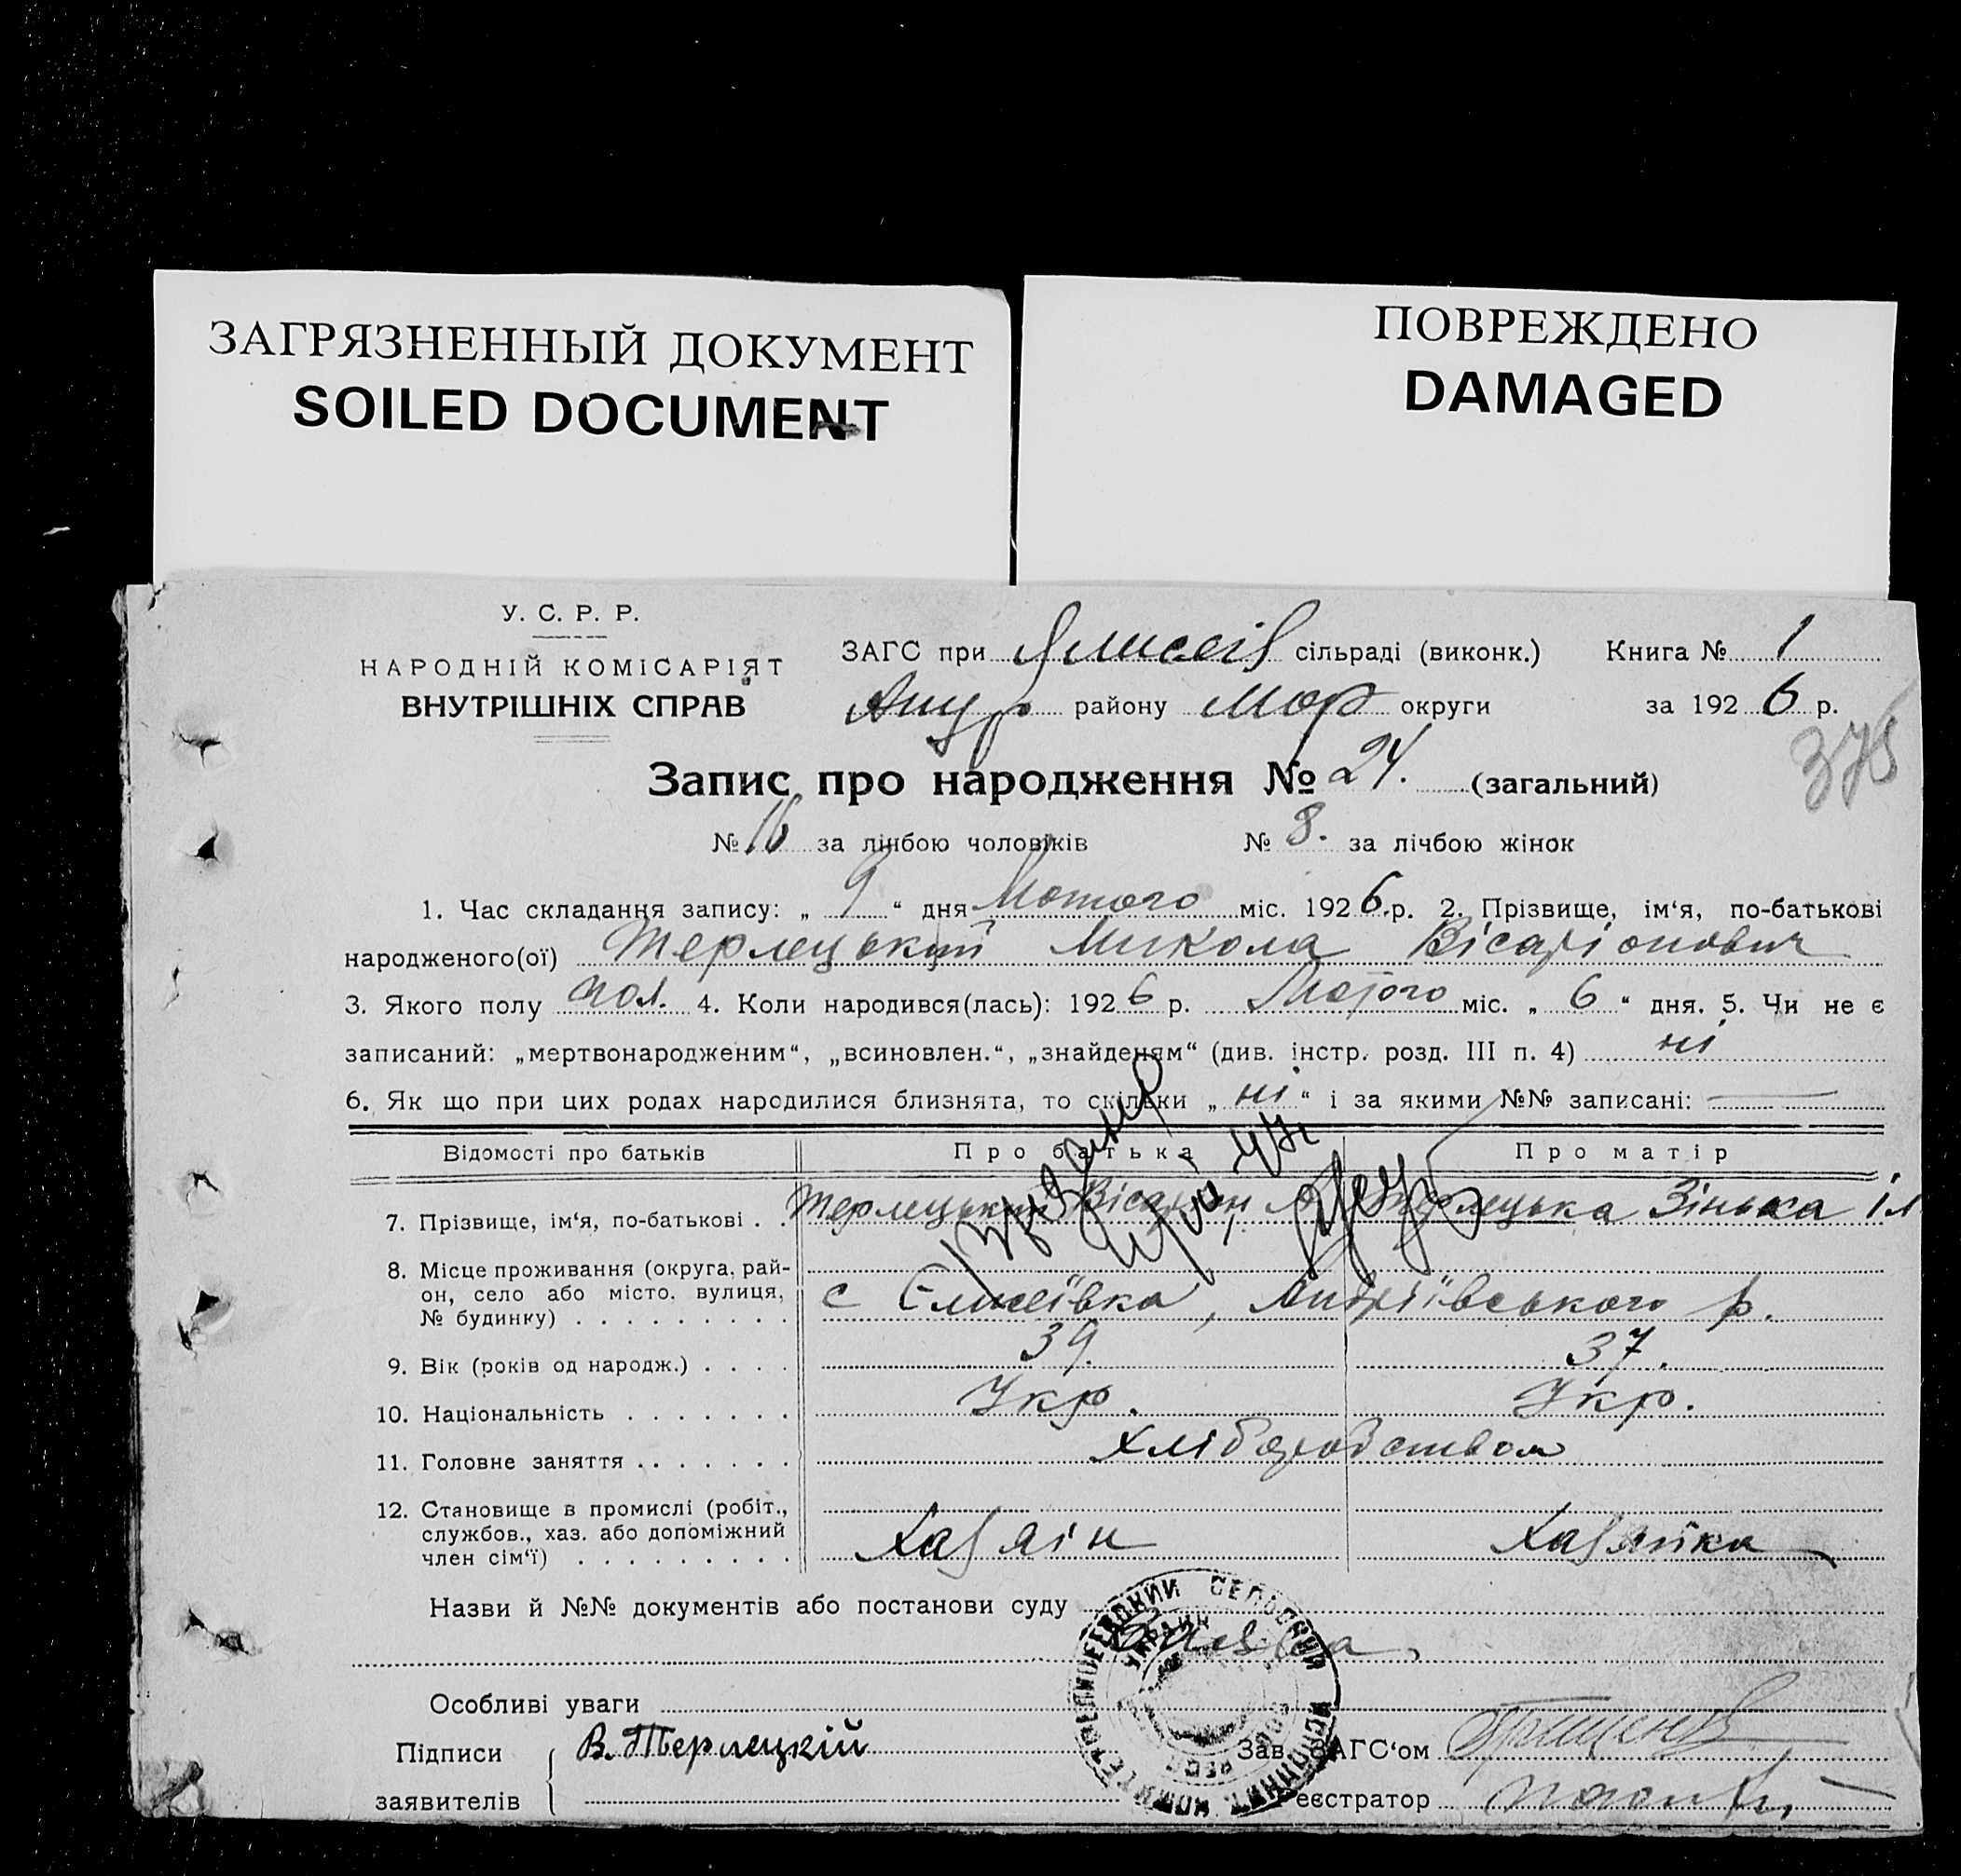 ЗАГРЯЗНЕННЫЙ ДОКУМЕНТ
SOILED DOCUMENT
ПОВРЕЖДЕНО
DAMAGED
У. С. Р. Р.
НАРОДНІЙ КОМІСАРІЯТ
ВНУТРІШНІХ СПРАВ
ЗАГС при сільраді (виконк.) Книга № 1
району Мар округи за 1926 р.
375
Запис про народження № 24. (загальний)
№ 16 за лічбою чоловіків № 8. за лічбою жінок
1. Час складання запису: „ 9 “ дня Лютого міс. 1926.р. 2. Прізвище, ім‘я, по-батькові
народженого(ої) Терлецький Микола Вісаріонович
3. Якого полу чол. 4. Коли народився(лась): 1926 р. Лютого міс. „ 6 “ дня. 5. Чи не є
записаний: „мертвонародженим“, „всиновлен.“, „знайденям“ (див. інстр. розд. III п. 4) ні
6. Як що при цих родах народилися близнята, то скільки „ ні “ і за якими №№ записані: —
Відомості про батьків Про батька Про матір
7. Прізвище, ім‘я, по-батькові . . Терлецький Вісаріон Терлецька Зінька Іл
8. Місце проживання (округа, рай-
он, село або місто, вулиця,
№ будинку) . . . . . . . . . с Єлисеївка, Андріївського р.
9. Вік (років од народж.) . . . . 39. 37.
10. Національність . . . . . . . Укр. Укр.
11. Головне заняття . . . . . . . Хліборобством
12. Становище в промислі (робіт.,
службов., хаз. або допоміжний
член сім‘ї) . . . . . . . . . Хазяїн Хазяйка
Назви й №№ документів або постанови суду
Особливі уваги
Підписи В. Терлецкій Зав. ЗАГС‘ом
заявителів еєстратор